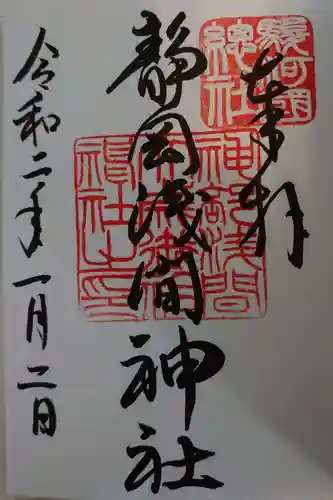 奉拝
駿河國總社
静岡浅間神社
令和二年一月二日